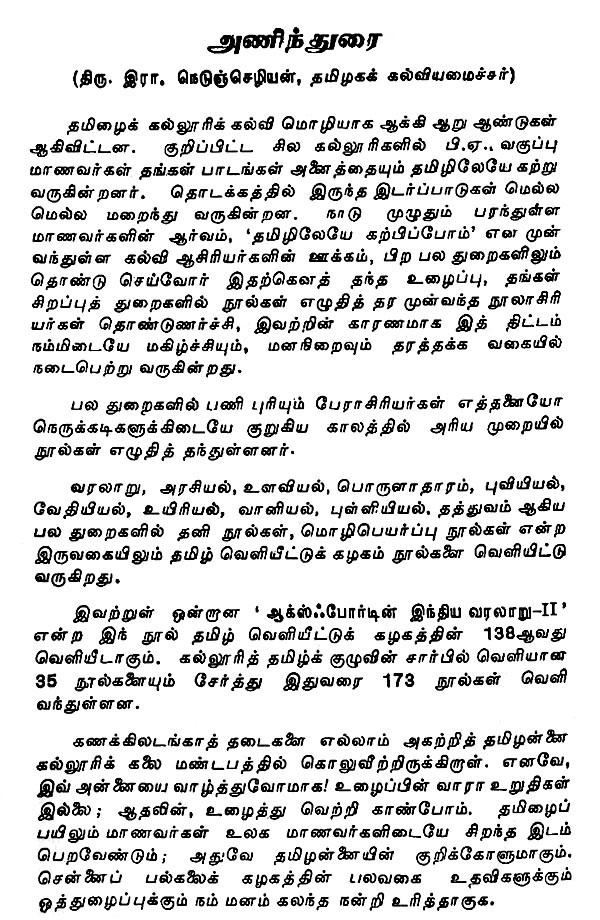 அணிந்துரை
(திரு. இரா. நெடுஞ்செழியன், தமிழகக் கல்வியமைச்சர்)
தமிழைக் கல்லூரிக் கல்வி மொழியாக ஆக்கி ஆறு ஆண்டுகள்
ஆகிவிட்டன. குறிப்பிட்ட சில கல்லூரிகளில் பி.ஏ., வகுப்பு
மாணவர்கள் தங்கள் பாடங்கள் அனைத்தையும் தமிழிலேயே கற்று
வருகின்றனர். தொடக்கத்தில் இருந்த இடர்ப்பாடுகள் மெல்ல
மெல்ல மறைந்து வருகின்றன. நாடு முழுதும் பரந்துள்ள
மாணவர்களின் ஆர்வம், ‘தமிழிலேயே கற்பிப்போம்’ என முன்
வந்துள்ள கல்வி ஆசிரியர்களின் ஊக்கம், பிற பல துறைகளிலும்
தொண்டு செய்வோர் இதற்கெனத் தந்த உழைப்பு, தங்கள்
சிறப்புத் துறைகளில் நூல்கள் எழுதித் தர முன்வந்த நூலாசிரி
யர்கள் தொண்டுணர்ச்சி, இவற்றின் காரணமாக இத் திட்டம்
நம்மிடையே மகிழ்ச்சியும், மனநிறைவும் தரத்தக்க வகையில்
நடைபெற்று வருகின்றது.
பல துறைகளில் பணி புரியும் பேராசிரியர்கள் எத்தனையோ
நெருக்கடிகளுக்கிடையே குறுகிய காலத்தில் அரிய முறையில்
நூல்கள் எழுதித் தந்துள்ளனர்.
வரலாறு, அரசியல், உளவியல், பொருளாதாரம், புவியியல்,
வேதியியல், உயிரியல், வானியல், புள்ளியியல், தத்துவம் ஆகிய
பல துறைகளில் தனி நூல்கள், மொழிபெயர்ப்பு நூல்கள் என்ற
இருவகையிலும் தமிழ் வெளியீட்டுக் கழகம் நூல்களை வெளியிட்டு
வருகிறது.
இவற்றுள் ஒன்றான ‘ஆக்ஸ்ஃபோர்டின் இந்திய வரலாறு-II’
என்ற இந் நூல் தமிழ் வெளியீட்டுக் கழகத்தின் 138ஆவது
வெளியீடாகும். கல்லூரித் தமிழ்க் குழுவின் சார்பில் வெளியான
35 நூல்களையும் சேர்த்து இதுவரை 173 நூல்கள் வெளி
வந்துள்ளன.
கணக்கிலடங்காத் தடைகளை எல்லாம் அகற்றித் தமிழன்னை
கல்லூரிக் கலை மண்டபத்தில் கொலுவீற்றிருக்கிறாள். எனவே,
இவ் அன்னையை வாழ்த்துவோமாக! உழைப்பின் வாரா உறுதிகள்
இல்லை; ஆதலின், உழைத்து வெற்றி காண்போம். தமிழைப்
பயிலும் மாணவர்கள் உலக மாணவர்களிடையே சிறந்த இடம்
பெறவேண்டும்; அதுவே தமிழன்னையின் குறிக்கோளுமாகும்.
சென்னைப் பல்கலைக் கழகத்தின் பலவகை உதவிகளுக்கும்
ஒத்துழைப்புக்கும் நம் மனம் கலந்த நன்றி உரித்தாகுக.